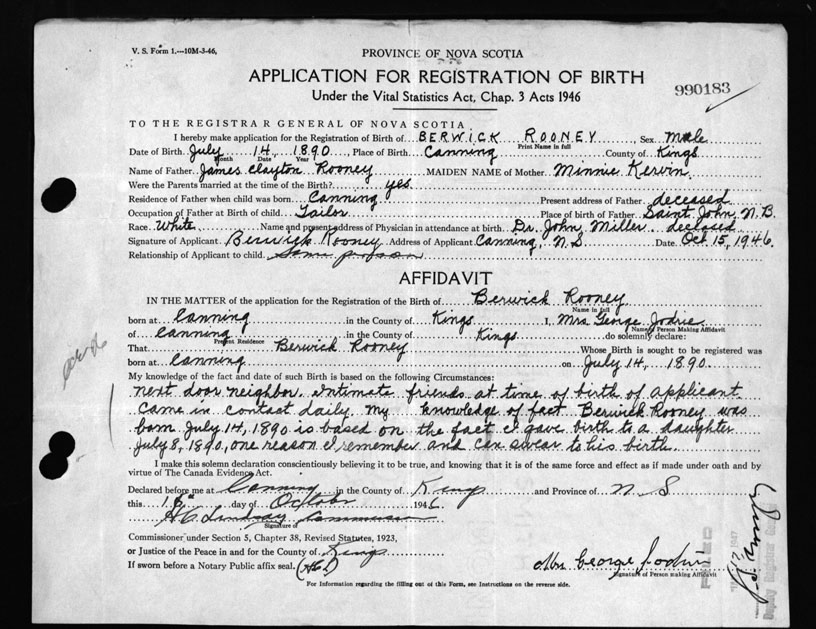 V. S. Form 1.—10M-3-46,
PROVINCE OF NOVA SCOTIA
APPLICATION FOR REGISTRATION OF BIRTH
990183
Under the Vital Statistics Act, Chap. 3 Acts 1946
TO THE REGISTRAR GENERAL OF NOVA SCOTIA
I hereby make application for the Registration of Birth of BERWICK ROONEY Sex Male
Print Name in full
Date of Birth July 14, 1890 Place of Birth Canning County of Kings
Month Date Year
Name of Father James Clayton Rooney MAIDEN NAME of Mother Minnie Kerwin
Were the Parents married at the time of the Birth? yes
Residence of Father when child was born Canning Present address of Father deceased
Occupation of Father at Birth of child Tailor Place of birth of Father Saint John, N.B.
Race White Name and present address of Physician in attendance at birth Dr. John Miller. declased
Signature of Applicant Berwick Rooney Address of Applicant Canning, N.S. Date Oct 15, 1946
Relationship of Applicant to child Same person
AFFIDAVIT
IN THE MATTER of the application for the Registration of the Birth of Berwick Rooney
Name in full
born at Canning in the County of Kings I, Mrs George Jodrie
Name of Person Making Affidavit
of Canning in the County of Kings do solemnly declare:
Present Residence
That Berwick Rooney Whose Birth is sought to be registered was
born at Canning on July 14, 1890.
My knowledge of the fact and date of such Birth is based on the following Circumstances:
next door neighbor. Intimate friends at time of birth of applicant
Came in contact daily. My knowledge of fact Berwick Rooney was
born July 14, 1890 is based on the fact I gave birth to a daughter
July 8, 1890, one reason I remember and can swear to his birth.
I make this solemn declaration conscientiously believing it to be true, and knowing that it is of the same force and effect as if made under oath and by
virtue of The Canada Evidence Act.
Declared before me at Canning in the County of Kings and Province of N S
this day of October 1946
H C Lindsay Commissioner
Signature of
Commissioner under Section 5, Chapter 38, Revised Statutes, 1923,
or Justice of the Peace in and for the County of Kings
If sworn before a Notary Public affix seal.
Mrs George Jodrie
Signature of Person making Affidavit
For Information regarding the filling out of this Form, see Instructions on the reverse side.
FILED
1947